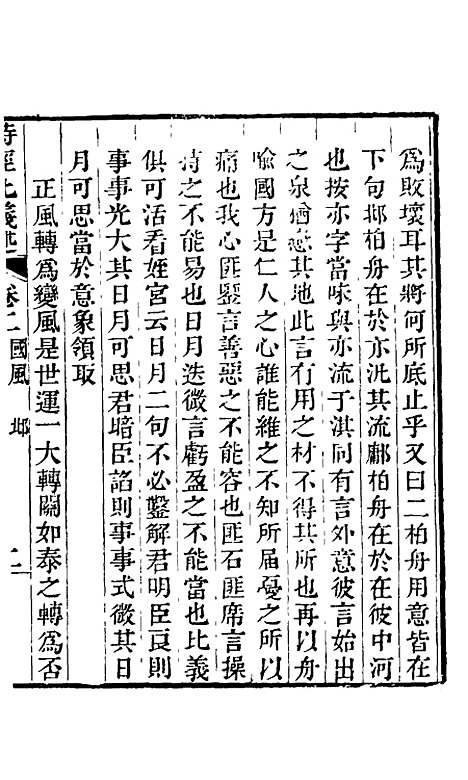 爲敗壞耳其將何所底止乎又曰二柏舟用意皆在
下句邶柏舟在於亦汎其流鄘柏舟在於在彼中河
也按亦字當味與亦流于淇同有言外意彼言始出
之泉猶戀其地此言有用之材不得其所也再以舟
喻國方是仁人之心誰能維之不知所屆憂之所以
痛也我心匪鑒言善惡之不能容也匪石匪席言操
持之不能易也日月迭微言虧盈之不能當也比義
俱可活看姪宮云日月二句不必鑿解君明臣良則
事事光大其日月可思君暗臣諂則事事式微其日
月可思當於意象領取
正風轉爲變風是世運一大轉關如泰之轉爲否
詩經比義述 卷二 國風 邶 二